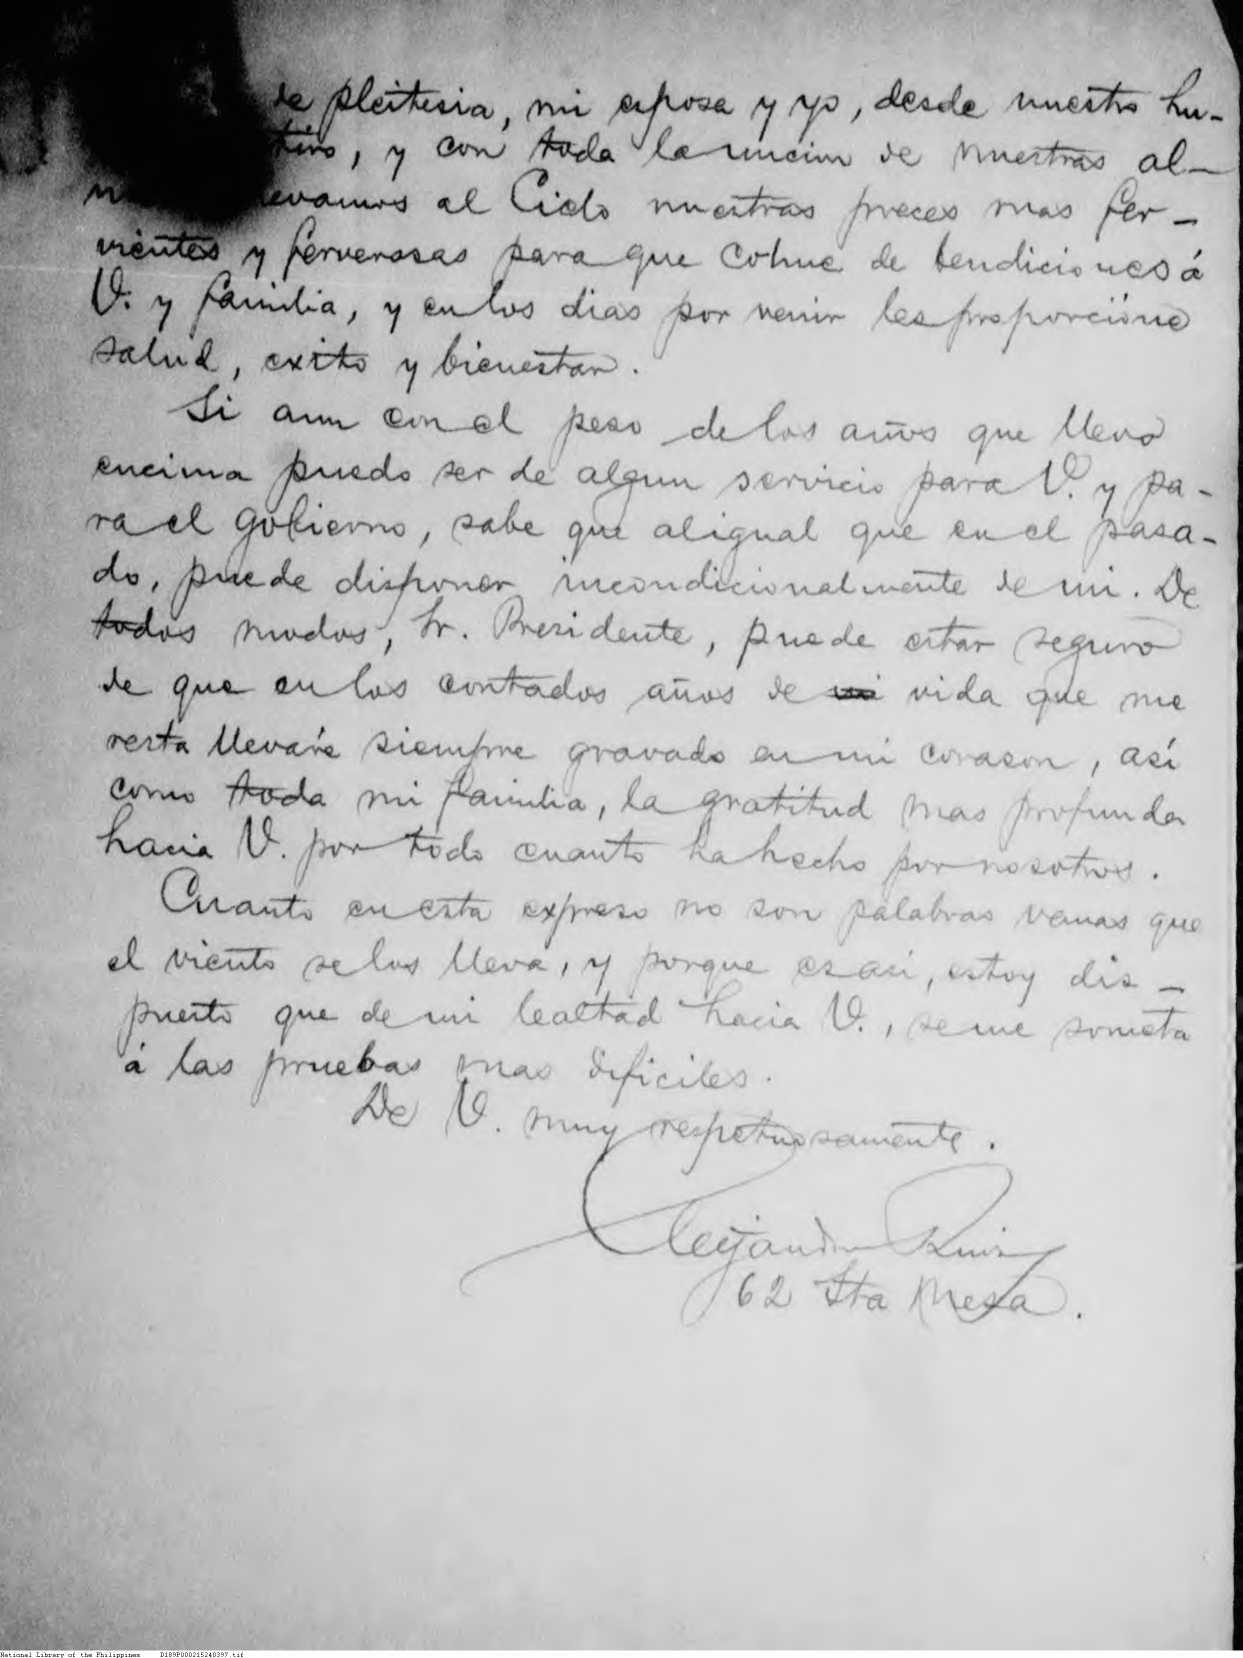 de pleitesia, mi esposa y yo, desde nuestro hu-
, y con toda la uncion de nuestras al-
evamos al Cielo nuestras preces mas fer-
vientes y fervorosas para que colme de bendiciones á
V. y familia, y en los dias por venir les proporcione
salud, exito y bienestar.
Si aun con el peso de los años que llevo
encima puedo ser de algun servicio para V. y pa-
ra el gobierno, sabe que al igual que en el pasa-
do, puede disponer incondicionalmente de mi. De
todos modos, Sr. Presidente, puede estar seguro
de que en los contados años de mi vida que me
resta llevaré siempre gravado en mi corason, así
como toda mi familia, la gratitud mas profunda
hacia V. por todo cuanto ha hecho por nosotros.
Cuanto en esta expreso no son palabras vanas que
el viento se las lleva, y porque es asi, estoy dis-
puesto que de mi lealtad hacia V., se me someta
á las pruebas mas dificiles.
De V. muy respetuosamente.
Alejandro Ruiz
62 Sta Mesa.
National Library of the Philippines D189P000215240397.tif